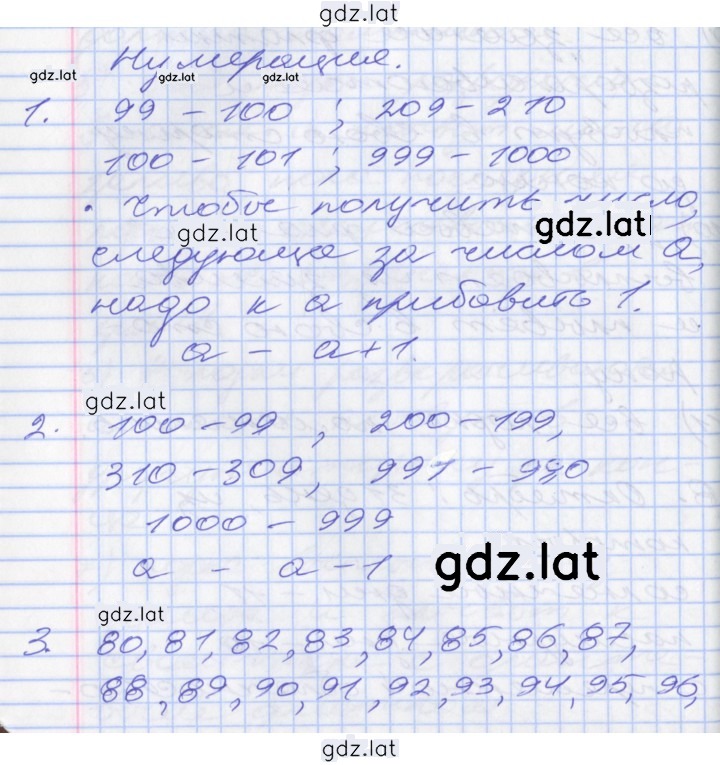 gdz.lat
Нумерация.
gdz.lat gdz.lat gdz.lat
1. 99 – 100 ; 209 – 210
100 – 101 ; 999 – 1000
• Чтобы получить число,
gdz.lat gdz.lat
следующее за числом а,
надо к а прибавить 1.
а – а+1.
gdz.lat
2. 100 – 99 , 200 – 199,
310 – 309, 991 – 990
1000 – 999
а – а – 1
gdz.lat
gdz.lat
3. 80, 81, 82, 83, 84, 85, 86, 87,
88, 89, 90, 91, 92, 93, 94, 95, 96,
gdz.lat